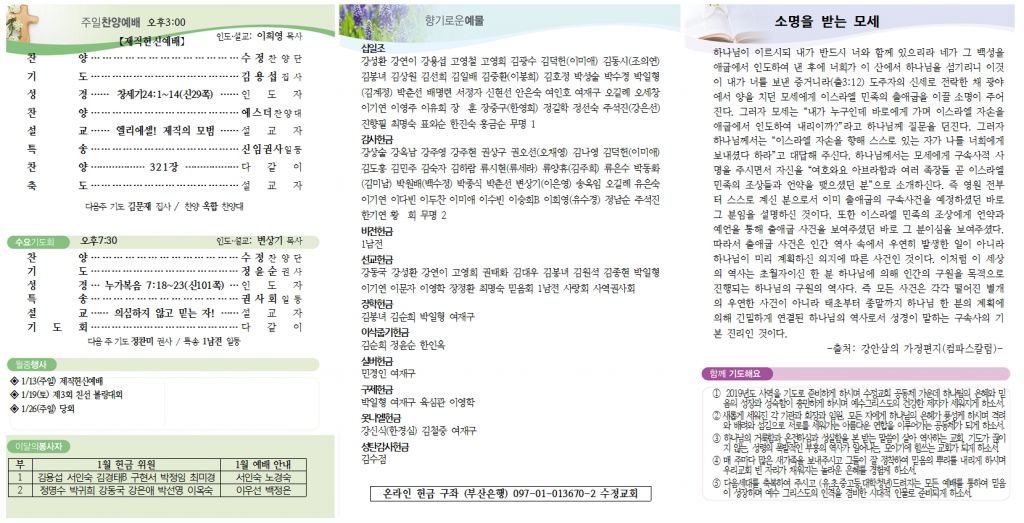 주일찬양예배 오후3:00
【제직헌신예배】 인도·설교: 이희영 목사
찬 양 수정찬양단
기 도 김용섭 집사
성 경 창세기24:1~14(신29쪽) 인 도 자
찬 양 에스더찬양대
설 교 엘리에셀! 제직의 모범 설 교 자
특 송 신임권사일동
찬 양 321장 다 같 이
축 도 설 교 자
다음주 기도 김문재 집사 / 찬양 옥합 찬양대
수요기도회 오후7:30 인도·설교: 변상기 목사
찬 양 수정찬양단
기 도 정윤순 권사
성 경 누가복음 7:18~23(신101쪽) 인 도 자
특 송 권사회일동
설 교 의심하지 않고 믿는 자! 설 교 자
기 도 회 다 같 이
다음 주 기도 정찬미 권사 / 특송 1남전 일동
월중행사
◈ 1/13(주일) 제직헌신예배
◈ 1/19(토) 제3회 친선 볼링대회
◈ 1/26(주일) 당회
이달의봉사자
부 1월 헌금 위원 1월 예배 안내
1 김용섭 서인숙 김경태B 구현서 박정임 최미경 서인숙 노경숙
2 정명수 박귀희 강동국 강은애 박선영 이옥숙 이우선 백정은
향기로운예물
십일조
강성환 강연이 강용섭 고영철 고영희 김광수 김덕현(이미애) 김동시(조의연)
김봉녀 김상원 김선희 김일배 김중환(이봉희) 김호정 박성술 박수경 박일형
(김계정) 박춘선 배명련 서정자 신현선 안은숙 여인호 여재구 오길례 오세창
이기연 이영주 이유희 장 훈 장중구(한영희) 정갈학 정선숙 주석진(강은선)
진향필 최명숙 표외순 한진숙 홍금순 무명 1
감사헌금
강상술 강옥남 강주영 강주현 권상구 권오선(오채영) 김나영 김덕현(이미애)
김도홍 김민주 김숙자 김하람 류시현(류세라) 류양휴(김주희) 류은수 박동화
(김미남) 박원배(백수정) 박종식 박춘선 변상기(이은영) 송옥임 오길례 유은숙
이기연 이다빈 이두찬 이미애 이수빈 이승희B 이희영(유수경) 정남순 주석진
한기연 황 희 무명 2
비전헌금
1남전
선교헌금
강동국 강성환 강연이 고영희 권태화 김대우 김봉녀 김원석 김종현 박일형
이기연 이문자 이영학 장정환 최명숙 믿음회 1남전 사랑회 사역권사회
장학헌금
김봉녀 김순희 박일형 여재구
이삭줍기헌금
김순희 정윤순 한인옥
실버헌금
민경인 여재구
구제헌금
박일형 여재구 육심관 이영학
옷니엘헌금
강신식(한경심) 김철중 여재구
성탄감사헌금
김수정
온라인 헌금 구좌 (부산은행) 097-01-013670-2 수정교회
소명을 받는 모세
하나님이 이르시되 내가 반드시 너와 함께 있으리라 네가 그 백성을
애굽에서 인도하여 낸 후에 너희가 이 산에서 하나님을 섬기리니 이것
이 내가 너를 보낸 증거니라(출3:12) 도주자의 신세로 전락한 채 광야
에서 양을 치던 모세에게 이스라엘 민족의 출애굽을 이끌 소명이 주어
진다. 그러자 모세는 "내가 누구인데 바로에게 가며 이스라엘 자손을
애굽에서 인도하여 내리이까?"라고 하나님께 질문을 던진다. 그러자
하나님께서는 "이스라엘 자손을 향해 스스로 있는 자가 나를 너희에게
보내셨다 하라"고 대답해 주신다. 하나님께서는 모세에게 구속사적 사
명을 주시면서 자신을 "여호와요 아브라함과 여러 족장들 곧 이스라엘
민족의 조상들과 언약을 맺으셨던 분"으로 소개하신다. 즉 영원 전부
터 스스로 계신 분으로서 이미 출애굽의 구속사건을 예정하셨던 바로
그 분임을 설명하신 것이다. 또한 이스라엘 민족의 조상에게 언약과
예언을 통해 출애굽 사건을 보여주셨던 바로 그 분이심을 보여주셨다.
따라서 출애굽 사건은 인간 역사 속에서 우연히 발생한 일이 아니라
하나님이 미리 계획하신 의지에 따른 사건인 것이다. 이처럼 이 세상
의 역사는 초월자이신 한 분 하나님에 의해 인간의 구원을 목적으로
진행되는 하나님의 구원의 역사다. 즉 모든 사건은 각각 떨어진 별개
의 우연한 사건이 아니라 태초부터 종말까지 하나님 한 분의 계획에
의해 긴밀하게 연결된 하나님의 역사로서 성경이 말하는 구속사의 기
본 진리인 것이다.
-출처: 강안삼의 가정편지(컴파스칼럼)-
함께 기도해요
① 2019년도 사역을 기도로 준비하게 하시며 수정교회 공동체 가운데 하나님의 은혜와 믿
음의 성장과 성숙함이 충만하게 하시며 예수그리스도의 건강한 제자가 세워지게 하소서.
② 새롭게 세워진 각 기관과 회장과 임원, 모든 자에게 하나님의 은혜가 풍성케 하시며 격려
와 배려와 섬김으로 서로를 세워가는 아름다운 연합을 이루어가는 공동체가 되게 하소서.
③ 하나님의 거룩함과 온전하심과 성실함을 본 받는 말씀이 살아 역사하는 교회, 기도가 끊이
지 않는, 성령의 폭발적인 부흥의 역사가 일어나는, 모이기에 힘쓰는 교회가 되게 하소서.
④ 매 주마다 많은 새가족을 보내주시고 그들이 잘 정착하여 믿음의 뿌리를 내리게 하시며
우리교회 빈 자리가 채워지는 놀라운 은혜를 경험케 하소서.
⑤ 다음세대를 축복하여 주시고 (유,초,중고등,대학청년)드려지는 모든 예배를 통하여 믿음
이 성장하며 예수 그리스도의 인격을 겸비한 시대적 인물로 준비되게 하소서.